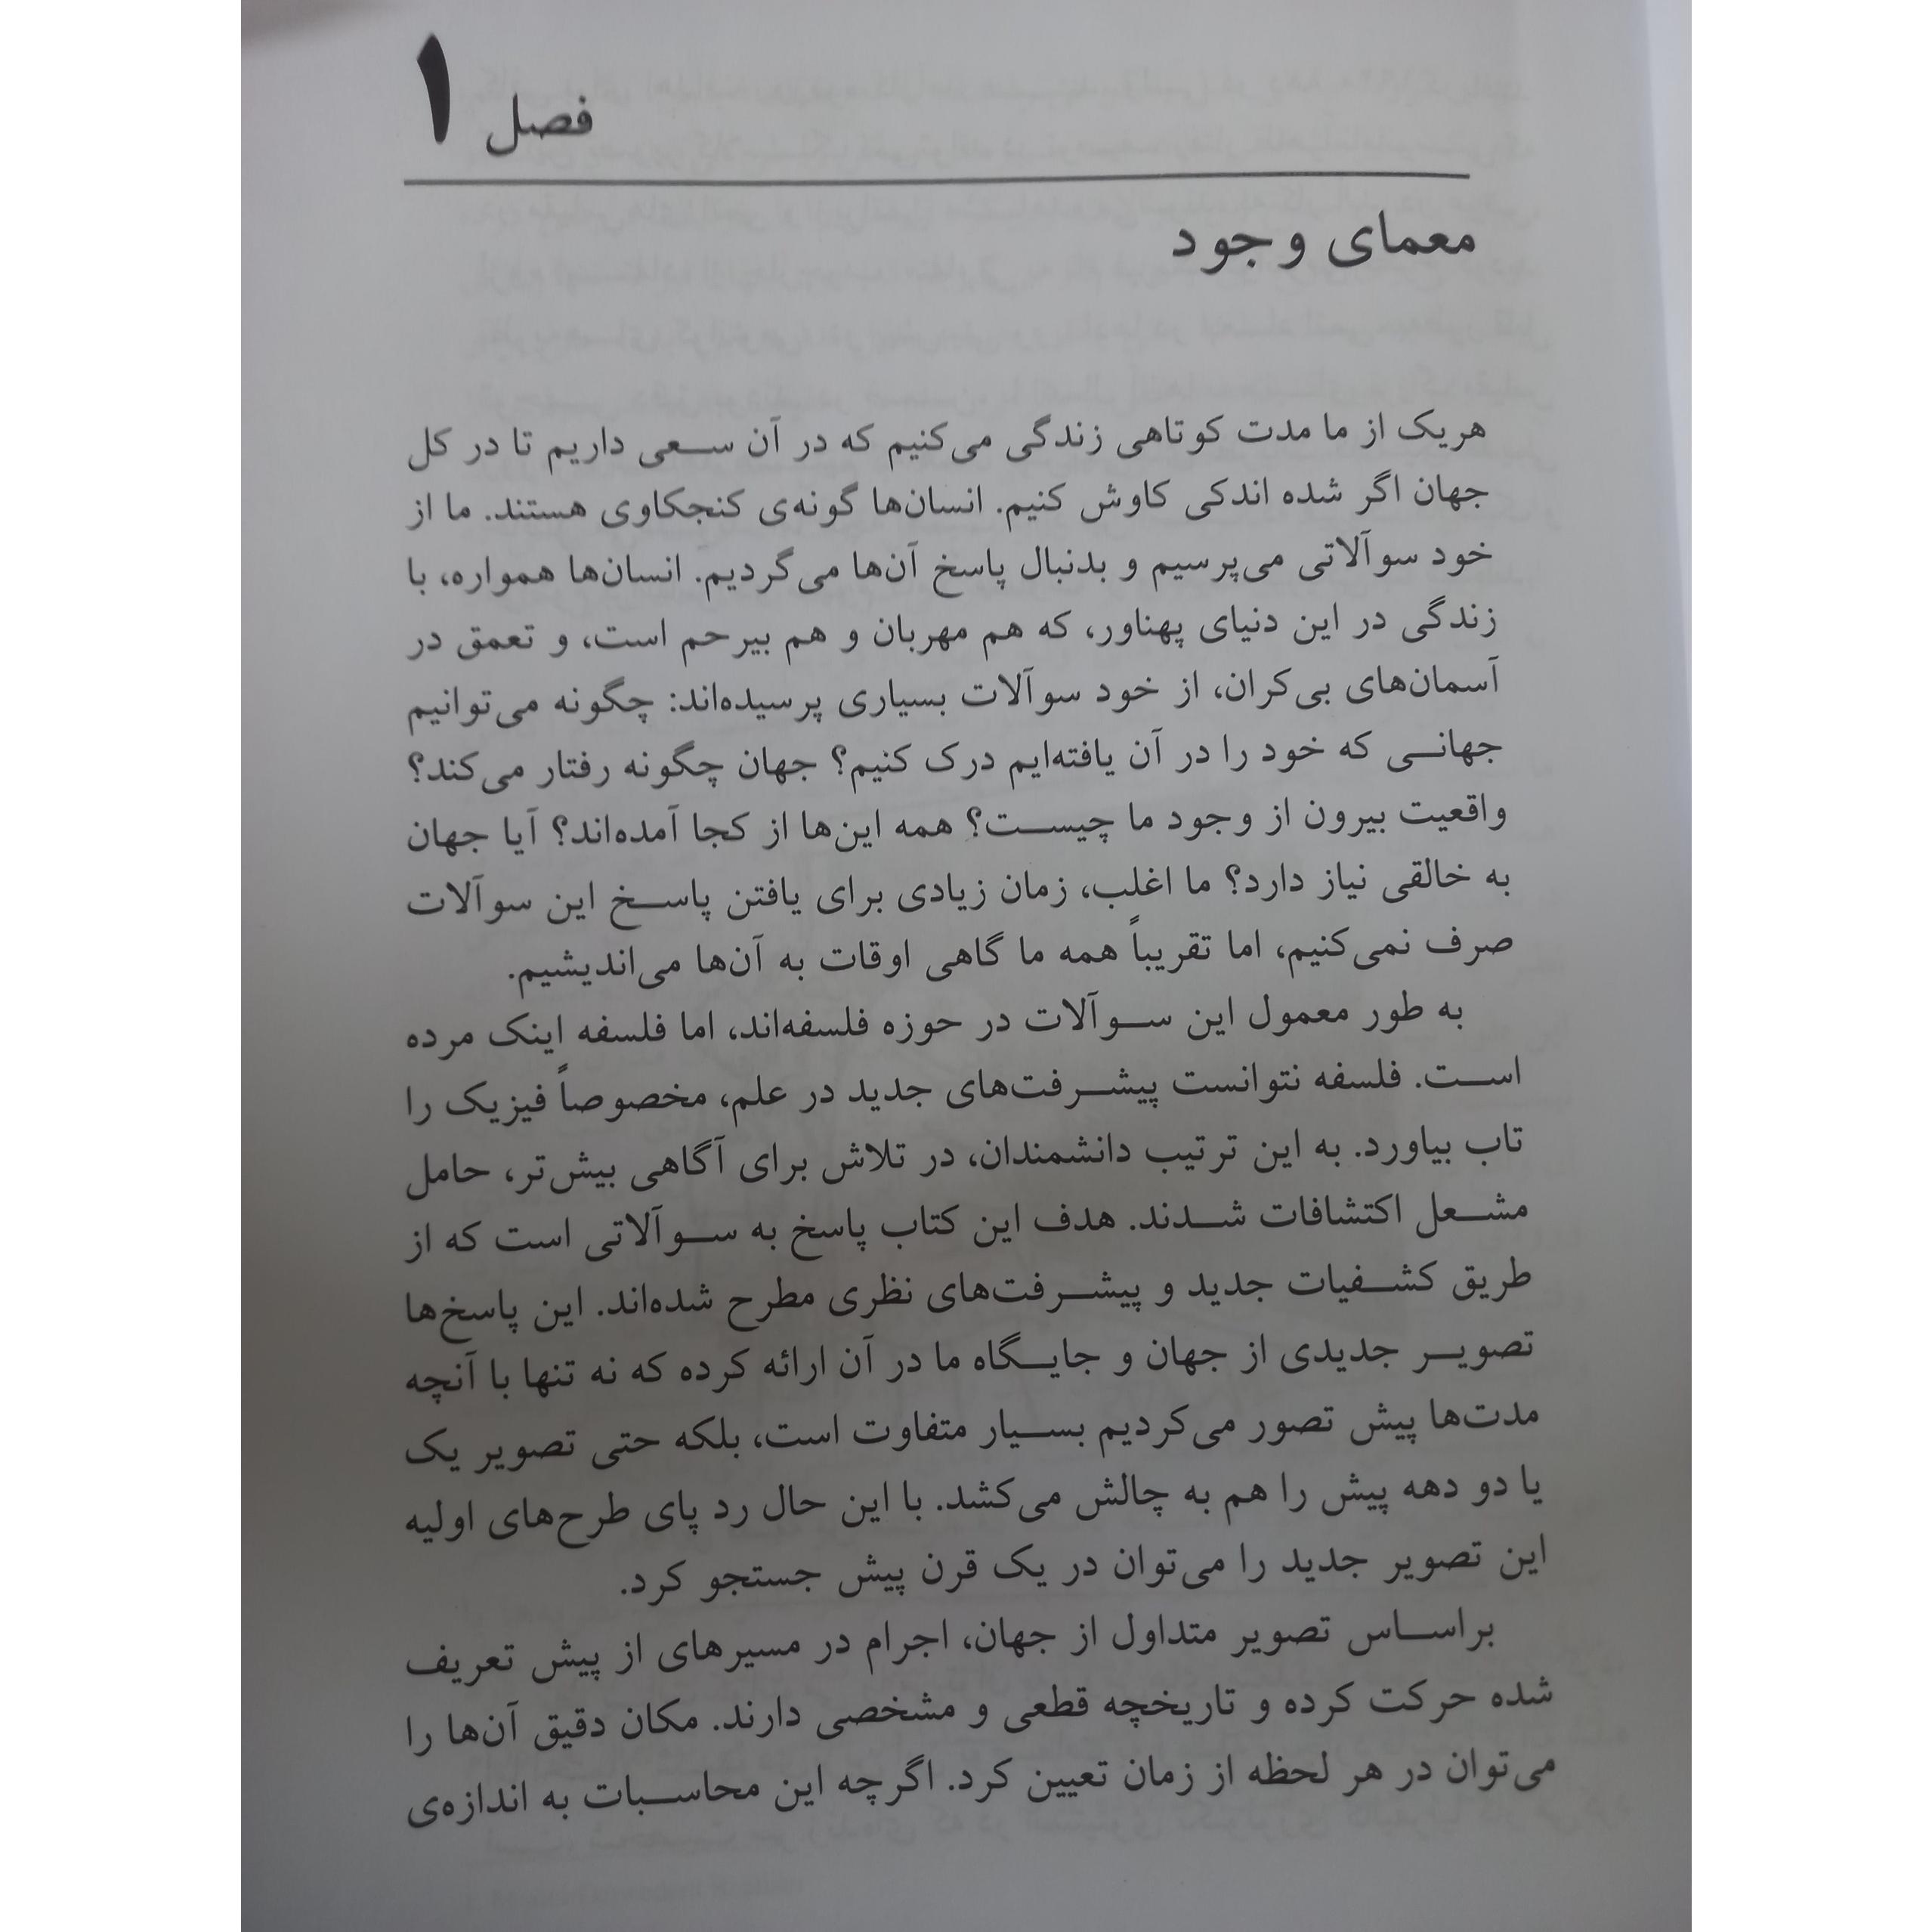 فصل ۱
معمای وجود
هریک از ما مدت کوتاهی زندگی می‌کنیم که در آن سعی داریم تا در کل
جهان اگر شده اندکی کاوش کنیم. انسان‌ها گونه‌ی کنجکاوی هستند. ما از
خود سوآلاتی می‌پرسیم و بدنبال پاسخ آن‌ها می‌گردیم. انسان‌ها همواره، با
زندگی در این دنیای پهناور، که هم مهربان و هم بیرحم است، و تعمق در
آسمان‌های بی‌کران، از خود سوآلات بسیاری پرسیده‌اند: چگونه می‌توانیم
جهانی که خود را در آن یافته‌ایم درک کنیم؟ جهان چگونه رفتار می‌کند؟
واقعیت بیرون از وجود ما چیست؟ همه این‌ها از کجا آمده‌اند؟ آیا جهان
به خالقی نیاز دارد؟ ما اغلب، زمان زیادی برای یافتن پاسخ این سوآلات
صرف نمی‌کنیم، اما تقریباً همه ما گاهی اوقات به آن‌ها می‌اندیشیم.
به طور معمول این سوآلات در حوزه فلسفه‌اند، اما فلسفه اینک مرده
است. فلسفه نتوانست پیشرفت‌های جدید در علم، مخصوصاً فیزیک را
تاب بیاورد. به این ترتیب دانشمندان، در تلاش برای آگاهی بیش‌تر، حامل
مشعل اکتشافات شدند. هدف این کتاب پاسخ به سوآلاتی است که از
طریق کشفیات جدید و پیشرفت‌های نظری مطرح شده‌اند. این پاسخ‌ها
تصویر جدیدی از جهان و جایگاه ما در آن ارائه کرده که نه تنها با آنچه
مدت‌ها پیش تصور می‌کردیم بسیار متفاوت است، بلکه حتی تصویر یک
یا دو دهه پیش را هم به چالش می‌کشد. با این حال رد پای طرح‌های اولیه
این تصویر جدید را می‌توان در یک قرن پیش جستجو کرد.
براساس تصویر متداول از جهان، اجرام در مسیرهای از پیش تعریف
شده حرکت کرده و تاریخچه قطعی و مشخصی دارند. مکان دقیق آن‌ها را
می‌توان در هر لحظه از زمان تعیین کرد. اگرچه این محاسبات به اندازه‌ی